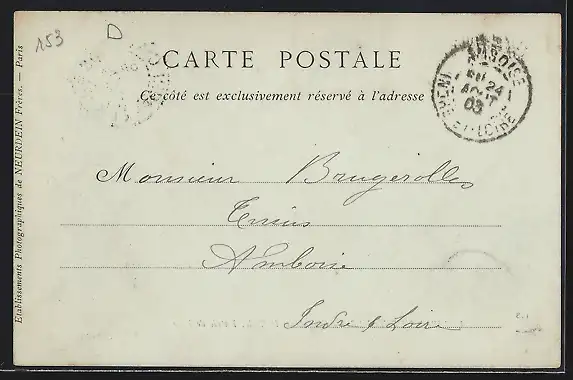 153
D
CARTE POSTALE
Ce côté est exclusivement réservé à l'adresse
AMBOISE
24
AOUT
03
INDRE-ET-LOIRE
Monsieur Baugerolles
Amboise
Indre & Loire
Etablissements Photographiques de NEURDEIN Frères. — Paris